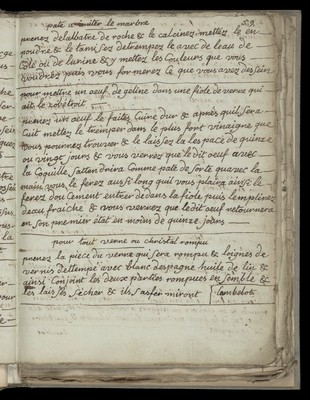 pate a imiter le marbre 59.
prenez de lalbatre de roche & le calcinez mettez le en
poudre & le tamisez detrempez le avec de leau de
colle ou de lurine & y mettez les couleurs que vous
voudrez puis vous formerez ce que vous avez dessein
pour mettre un oeuf de geline dans une fiole de verre qui
ait le col etroit
prenez un oeuf le faites cuire dur & apres quil sera
cuit mettez le tremper dans le plus fort vinaigre que
vous pourrez trouver & le laissez la lespace de quinze
ou vingt jours & vous verrez que ledit oeuf avec
la coquille sattendrira comme pate de sorte quavec la
main vous le ferez aussi long quil vous plaira ainsi le
ferez doucement entrer dedans la fiole puis lemplirez
deau fraiche & vous verrez que ledit oeuf retournera
en son premier etat en moins de quinze jours
pour tout verre ou christal rompu
prenez la piece du verre qui sera rompu & loignez de
vernis detrempé avec blanc despagne huile de lin &
ainsi conjoint les deux parties rompues ensemble &
les laissez secher & ils saffermiront